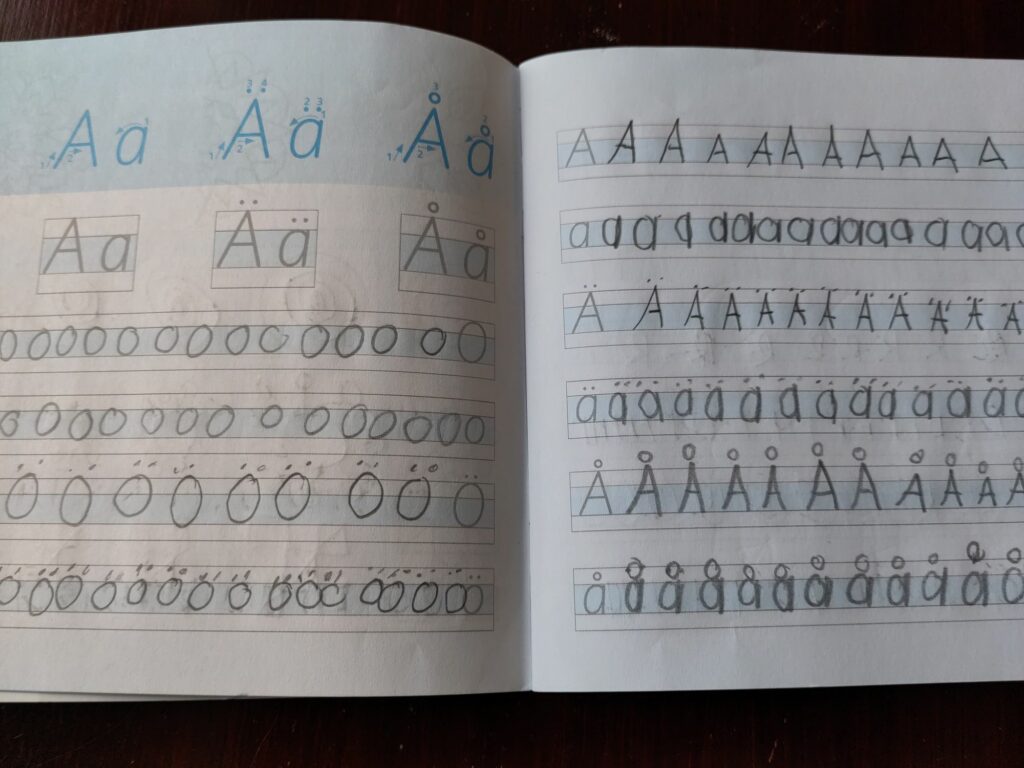 A a Ä ä Å å
A a Ä ä Å å
O O O O O O O O O O O O O O
o o o o o o o o o o o o o o
Ö Ö Ö Ö Ö Ö Ö Ö Ö
ö ö ö ö ö ö ö ö ö ö ö ö ö ö ö ö
A A A A A A A A A A A
a a a a a a a a a a a a a a a a
Ä Ä Ä Ä Ä Ä Ä Ä Ä Ä Ä Ä
ä ä ä ä ä ä ä ä ä ä ä ä ä ä
Å Å Å Å Å Å Å Å Å Å Å
å å å å å å å å å å å å